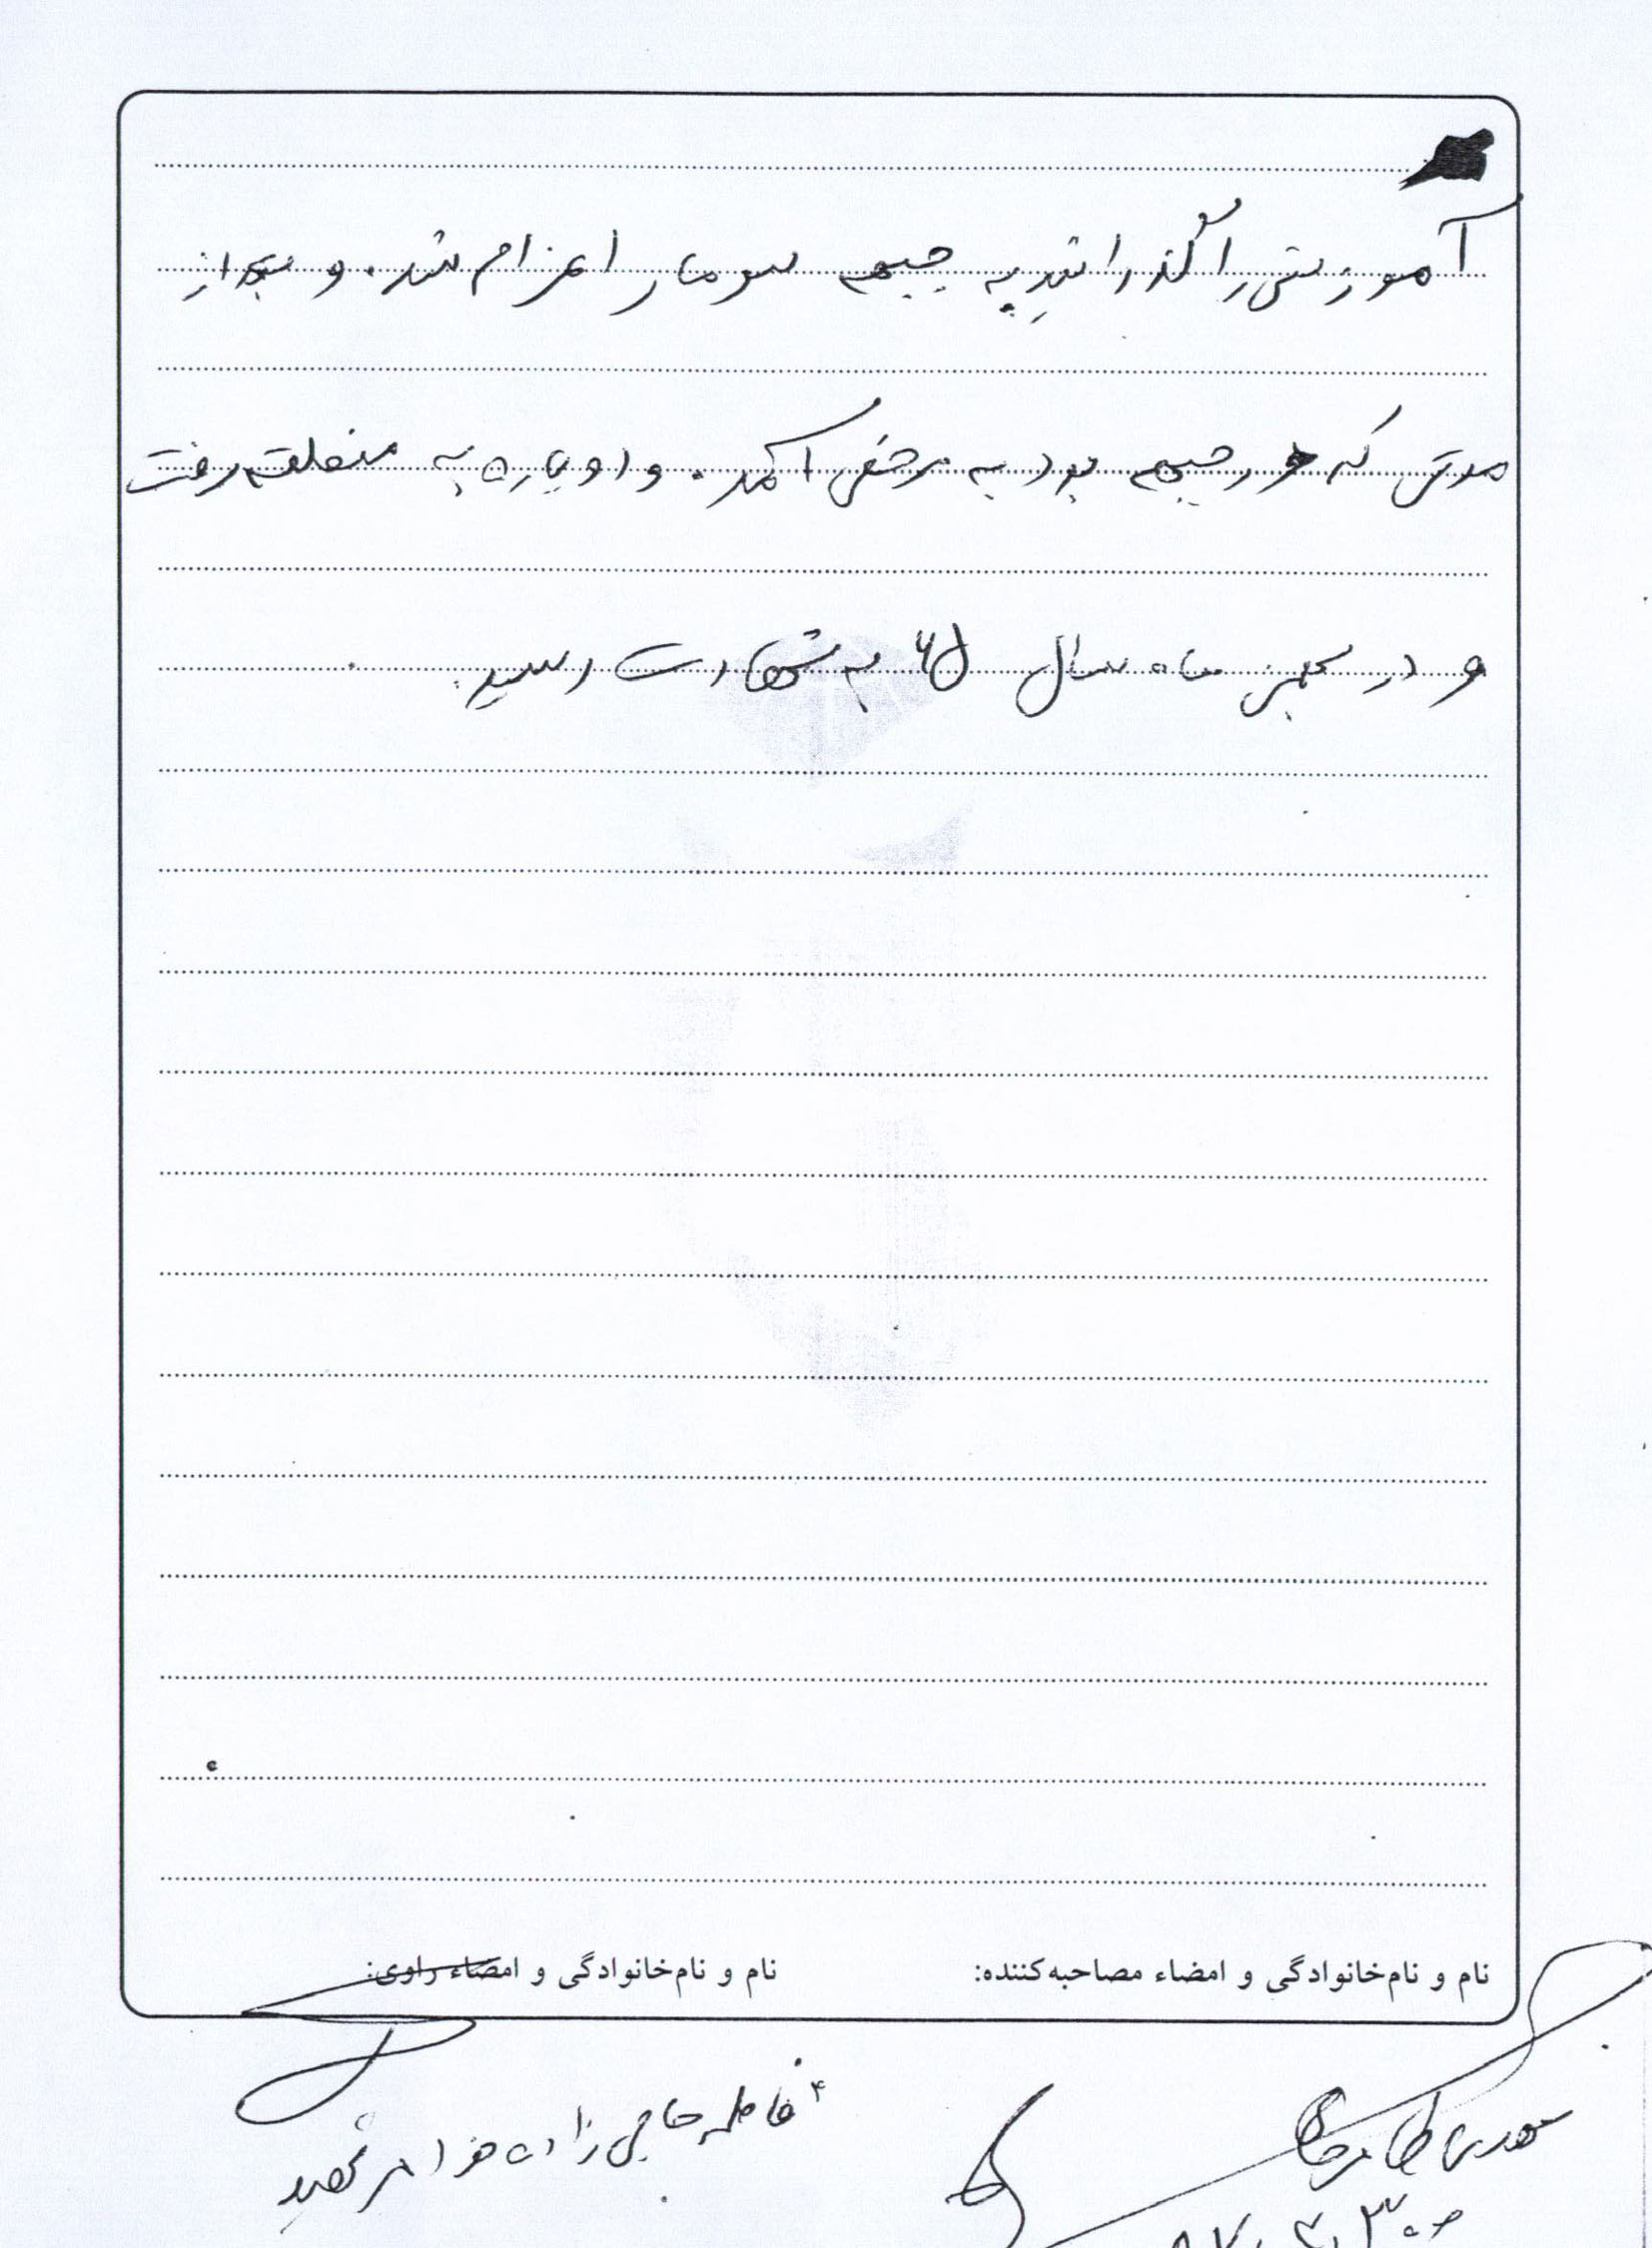 آموزشی را گذراند به جبهه سومار اعزام شد. و بعد از
مدتی که در جبهه بود به مرخصی آمد. و دوباره به منطقه رفت
و در بهمن ماه سال ۶۵ به شهادت رسید.
نام و نام‌خانوادگی و امضاء مصاحبه‌کننده:
نام و نام‌خانوادگی و امضاء راوی:
مهدی
فاطمه حاجی زاده خواهر شهید